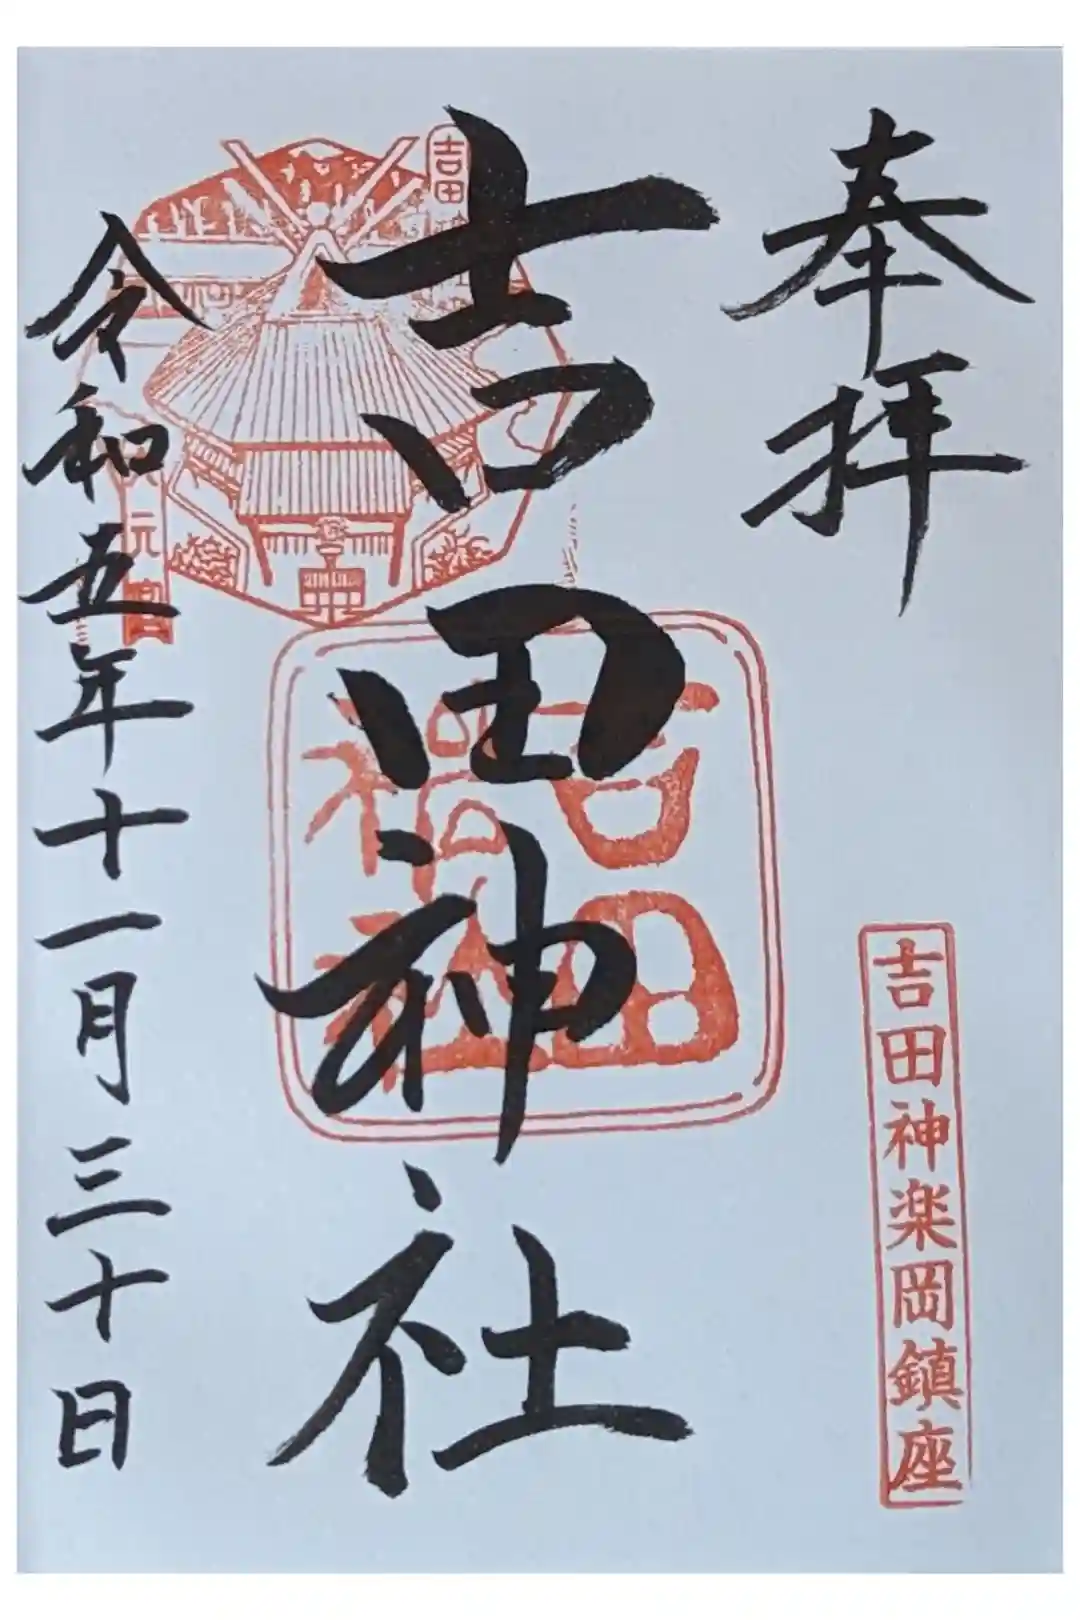 奉拝
吉田神楽岡鎮座
吉田神社
吉田
吉田
神社
元宮
令和五年十一月三十日